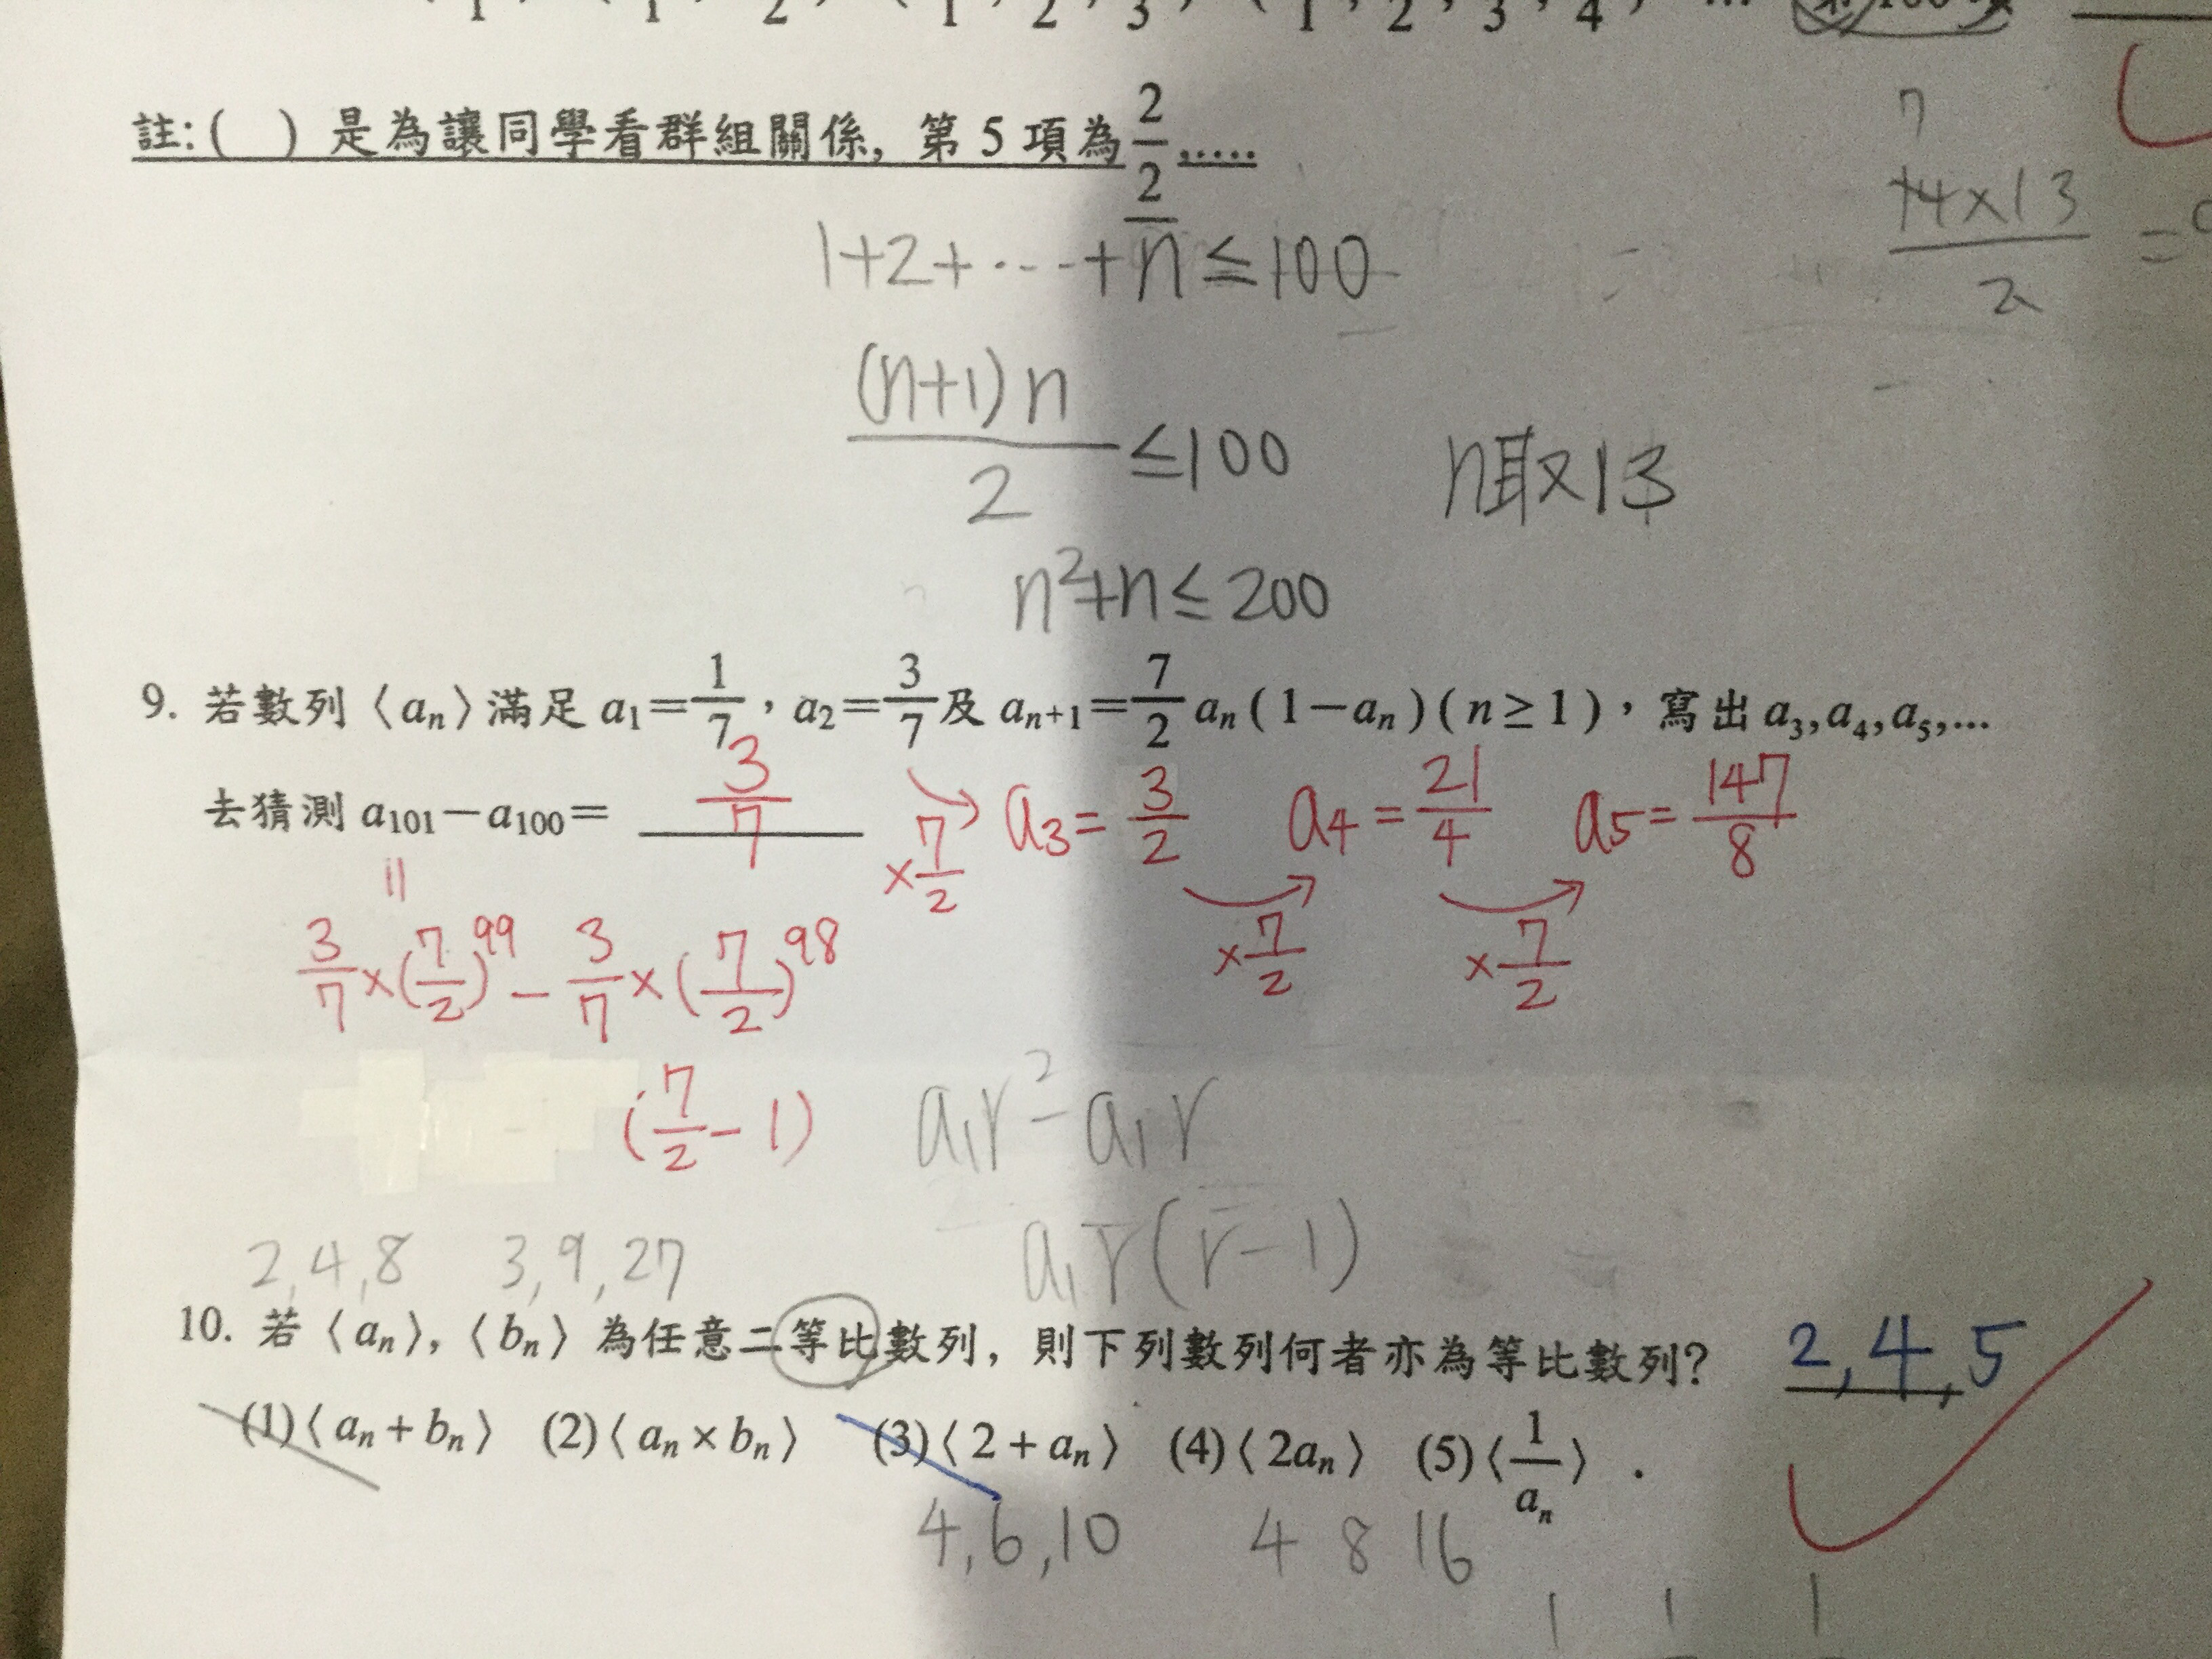 1 1 2 1 2 3 1 2 3 4 ...
註:( ) 是為讓同學看群組關係, 第 5 項為 2/2 .....
7
14×13/2 =
1+2+⋯+n≤100
(n+1)n/2 ≤100 n取13
n²+n≤200
9. 若數列〈aₙ〉滿足 a₁=1/7,a₂=3/7及 aₙ₊₁=7/2 aₙ(1−aₙ)(n≥1),寫出 a₃,a₄,a₅,...
去猜測 a₁₀₁−a₁₀₀= 3/7 ×7/2 a₃=3/2 a₄=21/4 a₅=147/8
×7/2 ×7/2
3/7×(7/2)⁹⁹−3/7×(7/2)⁹⁸
(7/2−1) a₁r²−a₁r
a₁r(r−1)
2,4,8 3,9,27
10. 若〈aₙ〉,〈bₙ〉為任意二等比數列, 則下列數列何者亦為等比數列? 2,4,5
(1)〈aₙ+bₙ〉 (2)〈aₙ×bₙ〉 (3)〈2+aₙ〉 (4)〈2aₙ〉 (5)〈1/aₙ〉 .
4,6,10 4 8 16
1 1 1